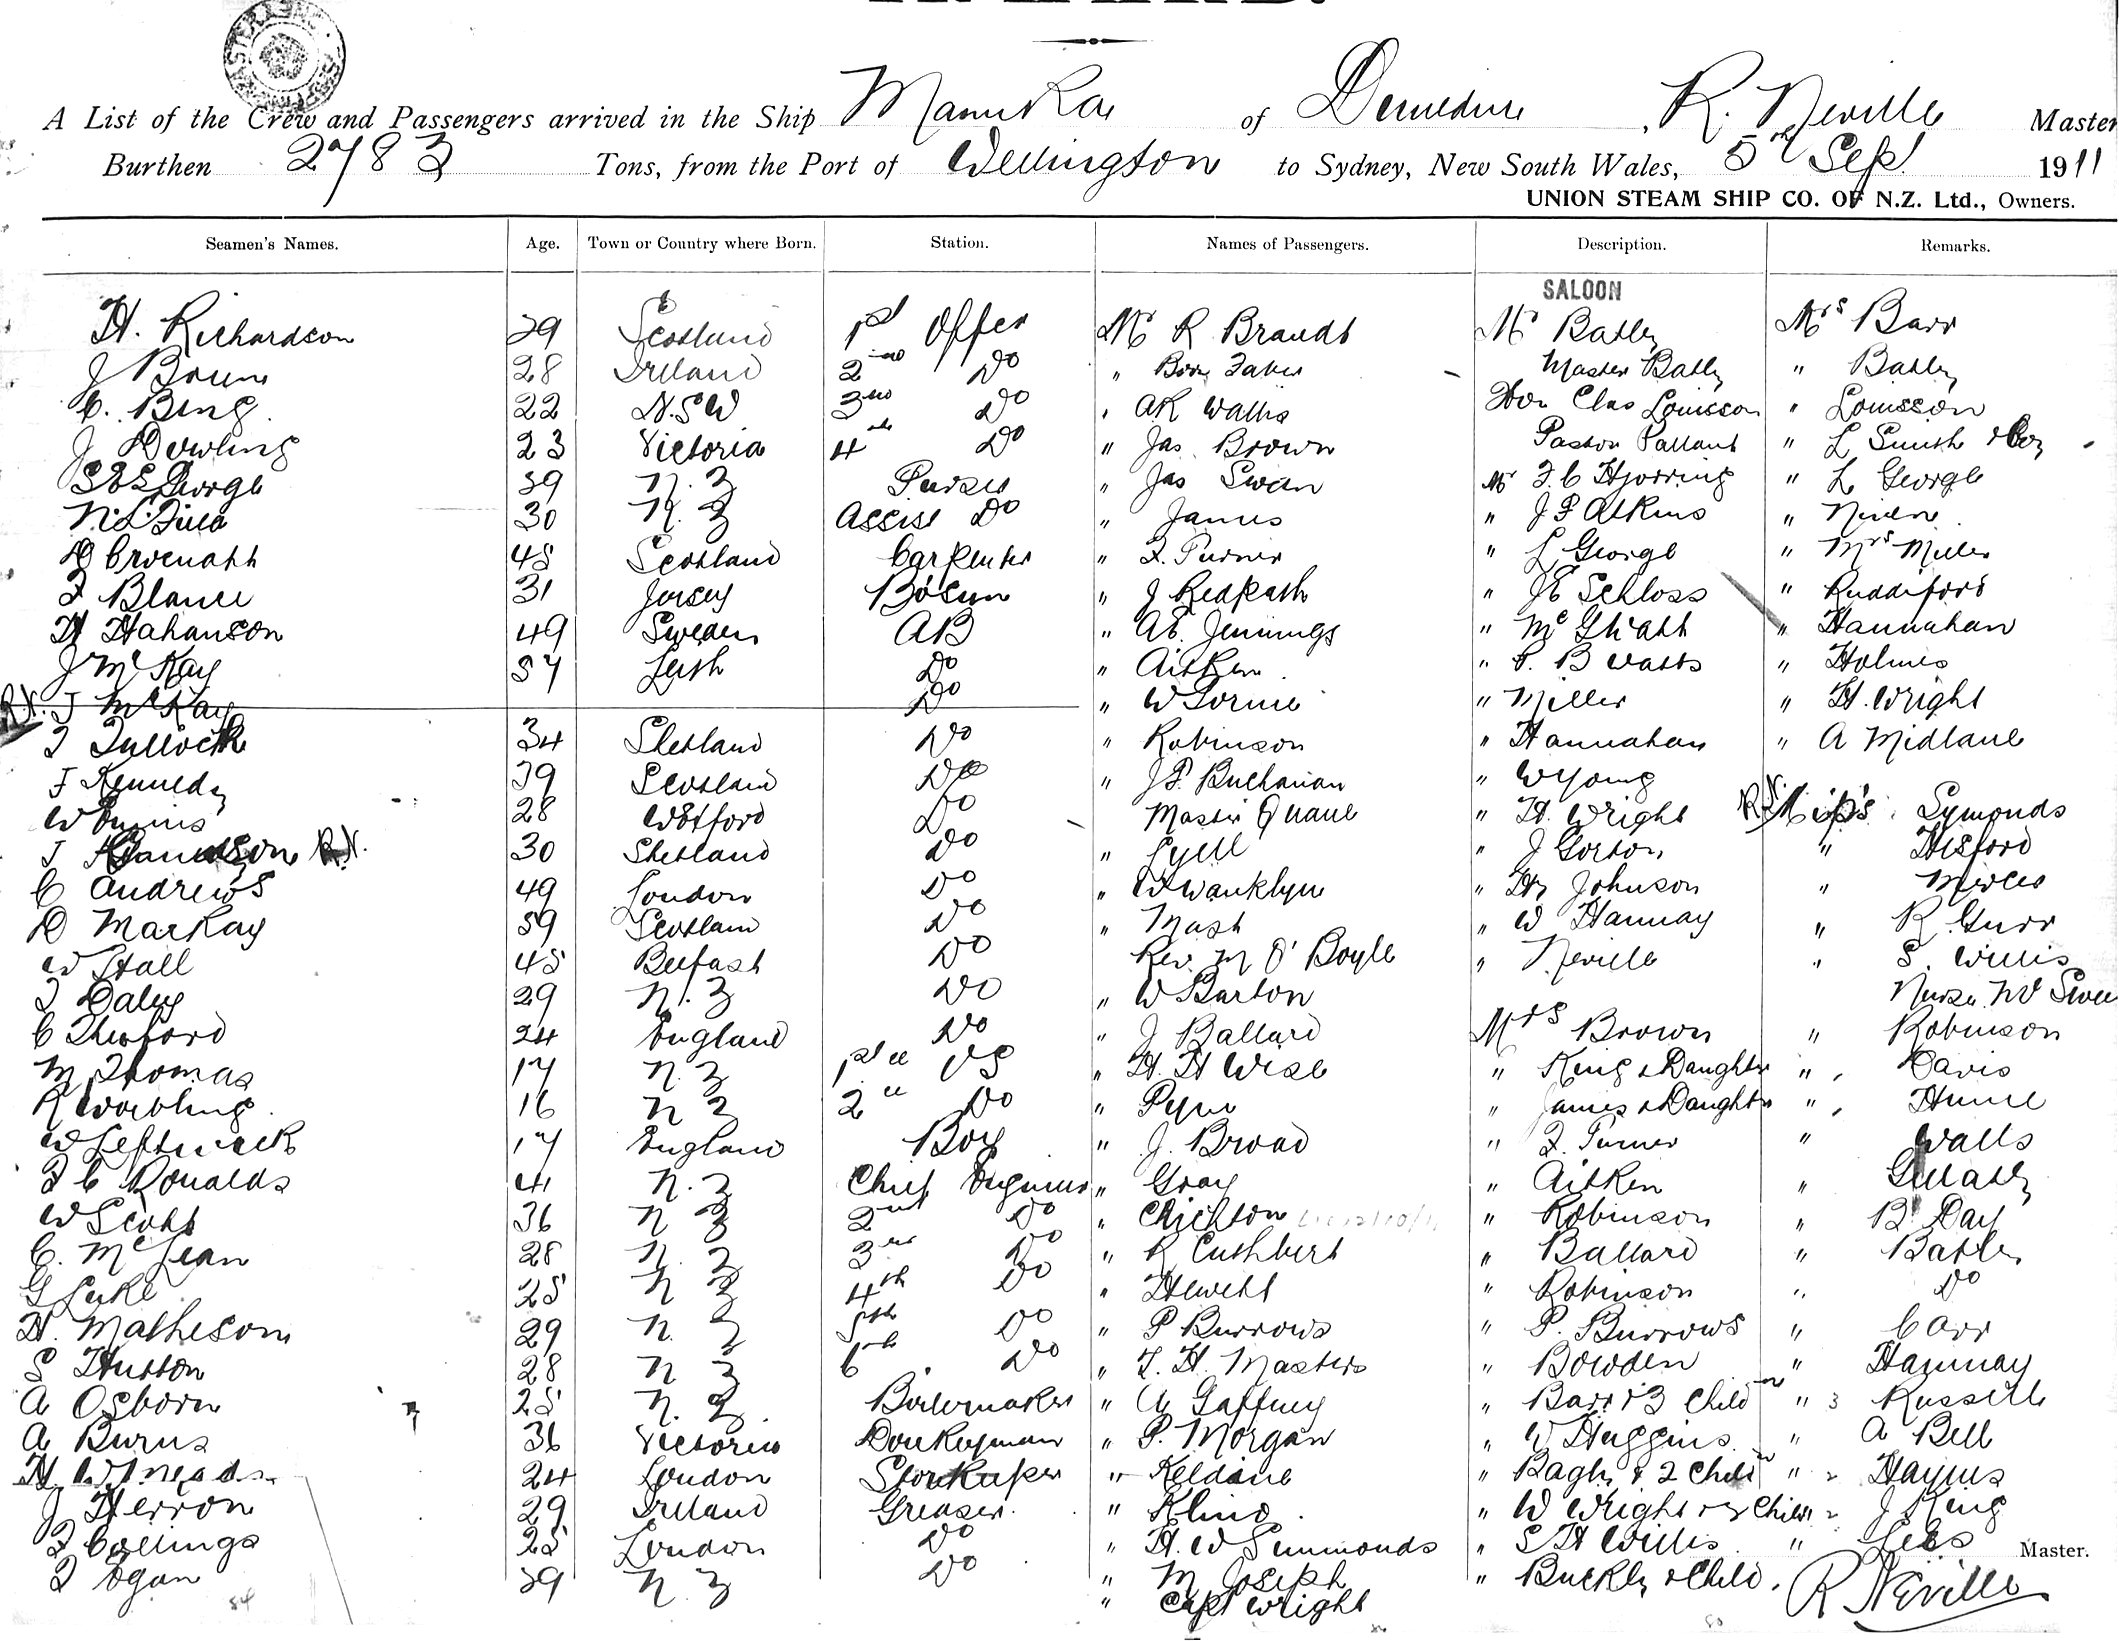 A List of the Crew and Passengers arrived in the Ship Manuka of Dunedin, R. Neville Master
Burthen 2783 Tons, from the Port of Wellington to Sydney, New South Wales, 5th Sept 1911
UNION STEAM SHIP CO. OF N.Z. Ltd., Owners.
Seamen's Names. Age. Town or Country where Born. Station. Names of Passengers. Description. Remarks.
SALOON
H. Richardson 29 Scotland 1st Offer Mr R Brandt Mr Batley Mrs Barr
J 28 Ireland 2nd Do " Master Batley " Batley
C. Bing 22 N.S.W 3rd Do " AR Wallis Hon Chas Louisson " Louisson
J Dowling 23 Victoria 4th Do " Jas Brown Pastor Pallant " L Smith & Boy
George 39 N.Z Purser " Jas Swan Mr F.C Hjorring " L George
30 N.Z Assist Do " James " J P Atkins "
48 Scotland Carpenter " F. Turner " L George " Mrs Miller
31 Jersey Bosun " J Redpath " JE Schloss " Ruddiford
H Hahanson 49 Sweden AB " AE. Jennings " " Hannahan
J McKay 57 Leith Do " Aitken " Watts " Holmes
J McKay Do " W Lorrie " Miller " H. Wright
T Tullock 34 Shetland Do " Robinson " Hannahan " A Midlane
F Kennedy 39 Scotland Do " J.P. Buchanan " W Young
W 28 Do Master Quane " H. Wright Miss Symonds
J 30 Shetland Do " Lyell " J Gorton "
C Andrews 49 London Do " Wanklyn " Johnson "
D MacKay 59 Scotland Do " Nash " W Hannay " R. Gurr
W Hall 45 Belfast Do Rev. M O'Boyle " Neville " S. Willis
T Daley 29 N.Z Do " W Barton Nurse
C 24 England Do " J Ballard Mrs Brown " Robinson
M Thomas 17 N.Z 1st cl OS " H. H Wise " King & Daughter " Davis
R 16 N Z 2 cl Do " Pyne " James & Daughter " Hume
W Leftwick 17 England Boy " J. Broad " F. Turner " Walls
F C Ronalds 41 N.Z Chief Engineer " Gray " Aitken " Gillatly
W Scott 36 N Z 2nd Do " Crichton " Robinson " B Day
C. McLean 28 N.Z 3rd Do " R Cuthbert " Ballard " Batley
G Luke 25 N Z 4th Do " Hewitt " Robinson " Do
H. Matheson 29 N.Z 5th Do " P Burrows " P. Burrows " Carr
S Hutton 28 N Z 6th Do " T. H. Masters " Bowden " Hannay
A Osborn 25 N.Z. Boilermaker " Gaffney " Barr & 3 Child " Russell
A Burns 36 Victoria Donkeyman " P. Morgan " W Huggins " A Bell
H. 24 London Storekeeper " " & 2 Child " Haynes
J Herron 29 Ireland Greaser " Kling " W Wright & Child " J King
F Collings 25 London Do " H. W Simmonds " S H Willis " Lees
T Ogan 29 N.Z Do " M Joseph " Buckley & Child
" Capt Wright
Master.
R Neville